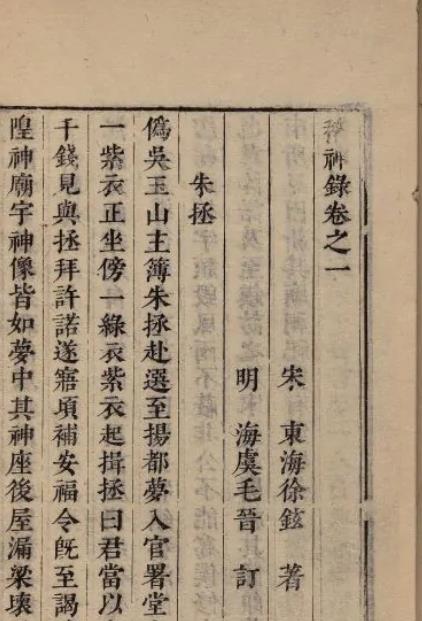 稽神錄卷之一
宋　東海徐鉉　著
明　海虞毛晉　訂
朱拯
僞吳玉山主簿朱拯赴選至揚都夢入官署堂
一紫衣正坐傍一綠衣紫衣起揖拯曰君當以
千錢見與拯拜許諾遂寤頃補安福令旣至謁
隍神廟宇神像皆如夢中其神座後屋漏梁壞